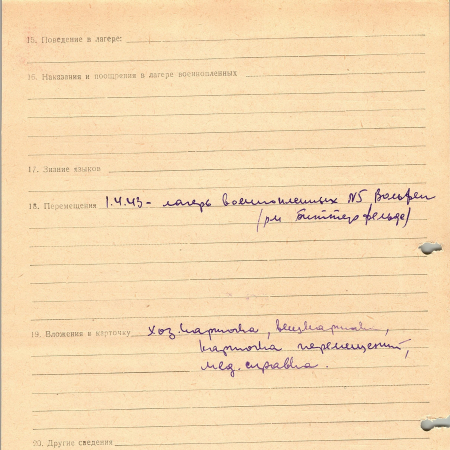 15. Поведение в лагере:
16. Наказания и поощрения в лагере военнопленных
17. Знание языков
18. Перемещения 1.4.43 - лагерь военнопленных N5 Вольфен
(рн Биттерфельде)
19. Вложения в карточку хоз.карточка, вещкарточка,
карточка перемещений,
мед. справка.
20. Другие сведения